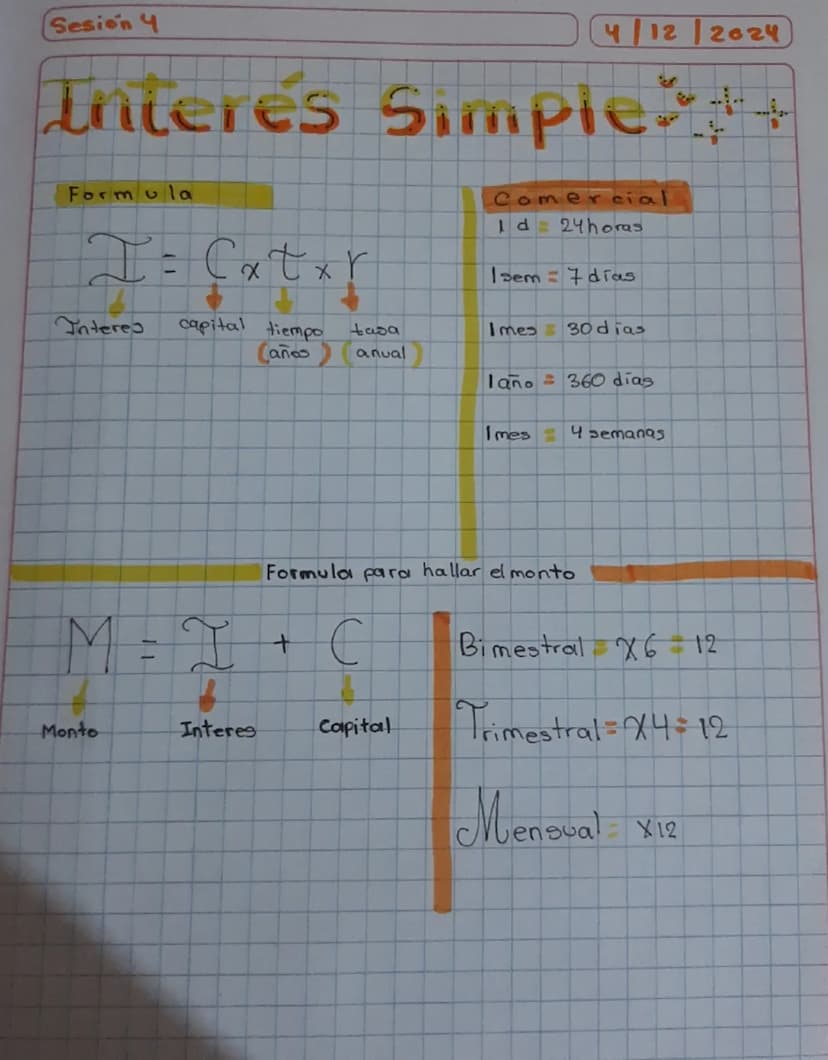 Sesión 4
4/12/2024
Interés Simple
Formula
I = C x t x r
Interes capital tiempo tasa
(años) (anual)
Comercial
1 d = 24 horas
1 sem = 7 días
1 mes = 30 días
1 año = 360 días
1 mes = 4 semanas
Formula para hallar el monto
M = I + C
Monto Interes Capital
Bimestral = x6 = 12
Trimestral = x4 = 12
Mensual = x12